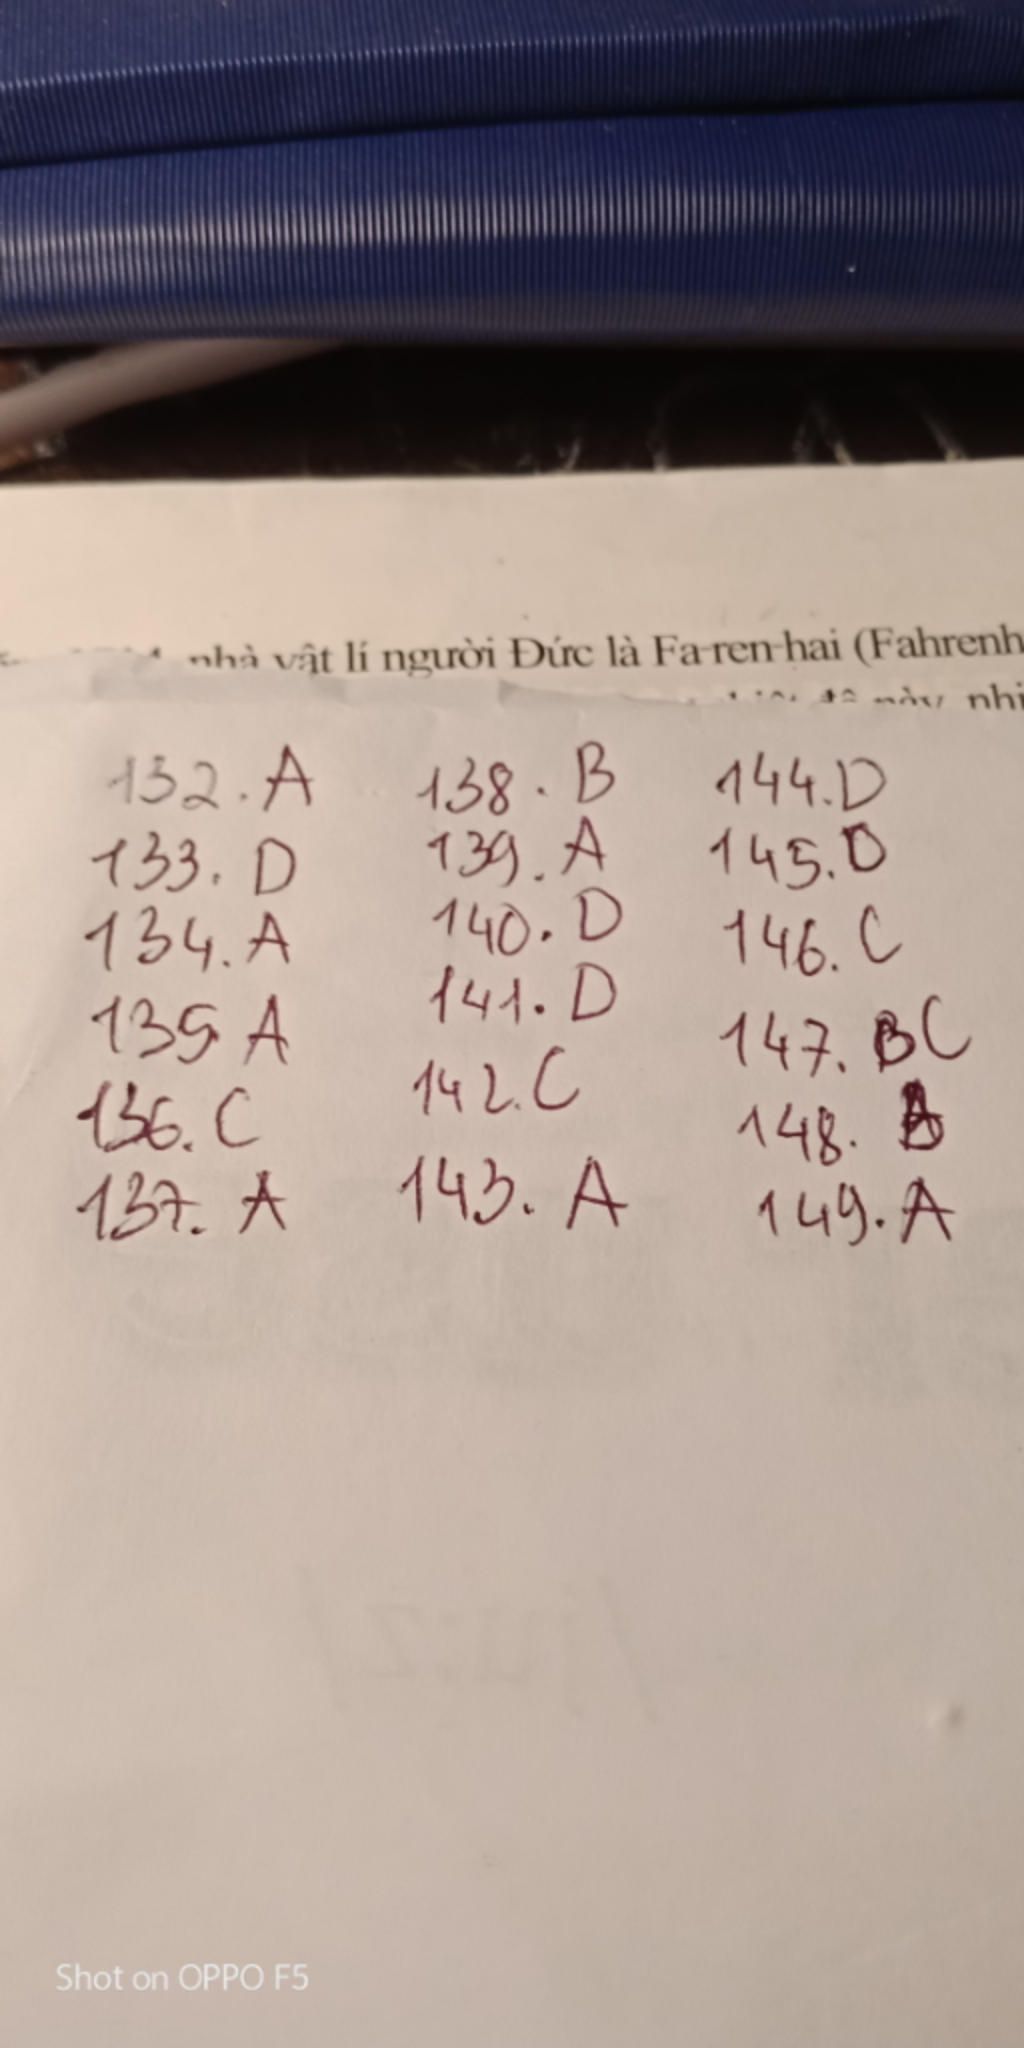 nhà vật lí người Đức là Fa-ren-hai (Fahrenh
độ này, nhi
132. A 138. B 144. D
133. D 139. A 145. D
134. A 140. D 146. C
135 A 141. D 147. BC
136. C 142. C 148.
137. A 143. A 149. A
Shot on OPPO F5